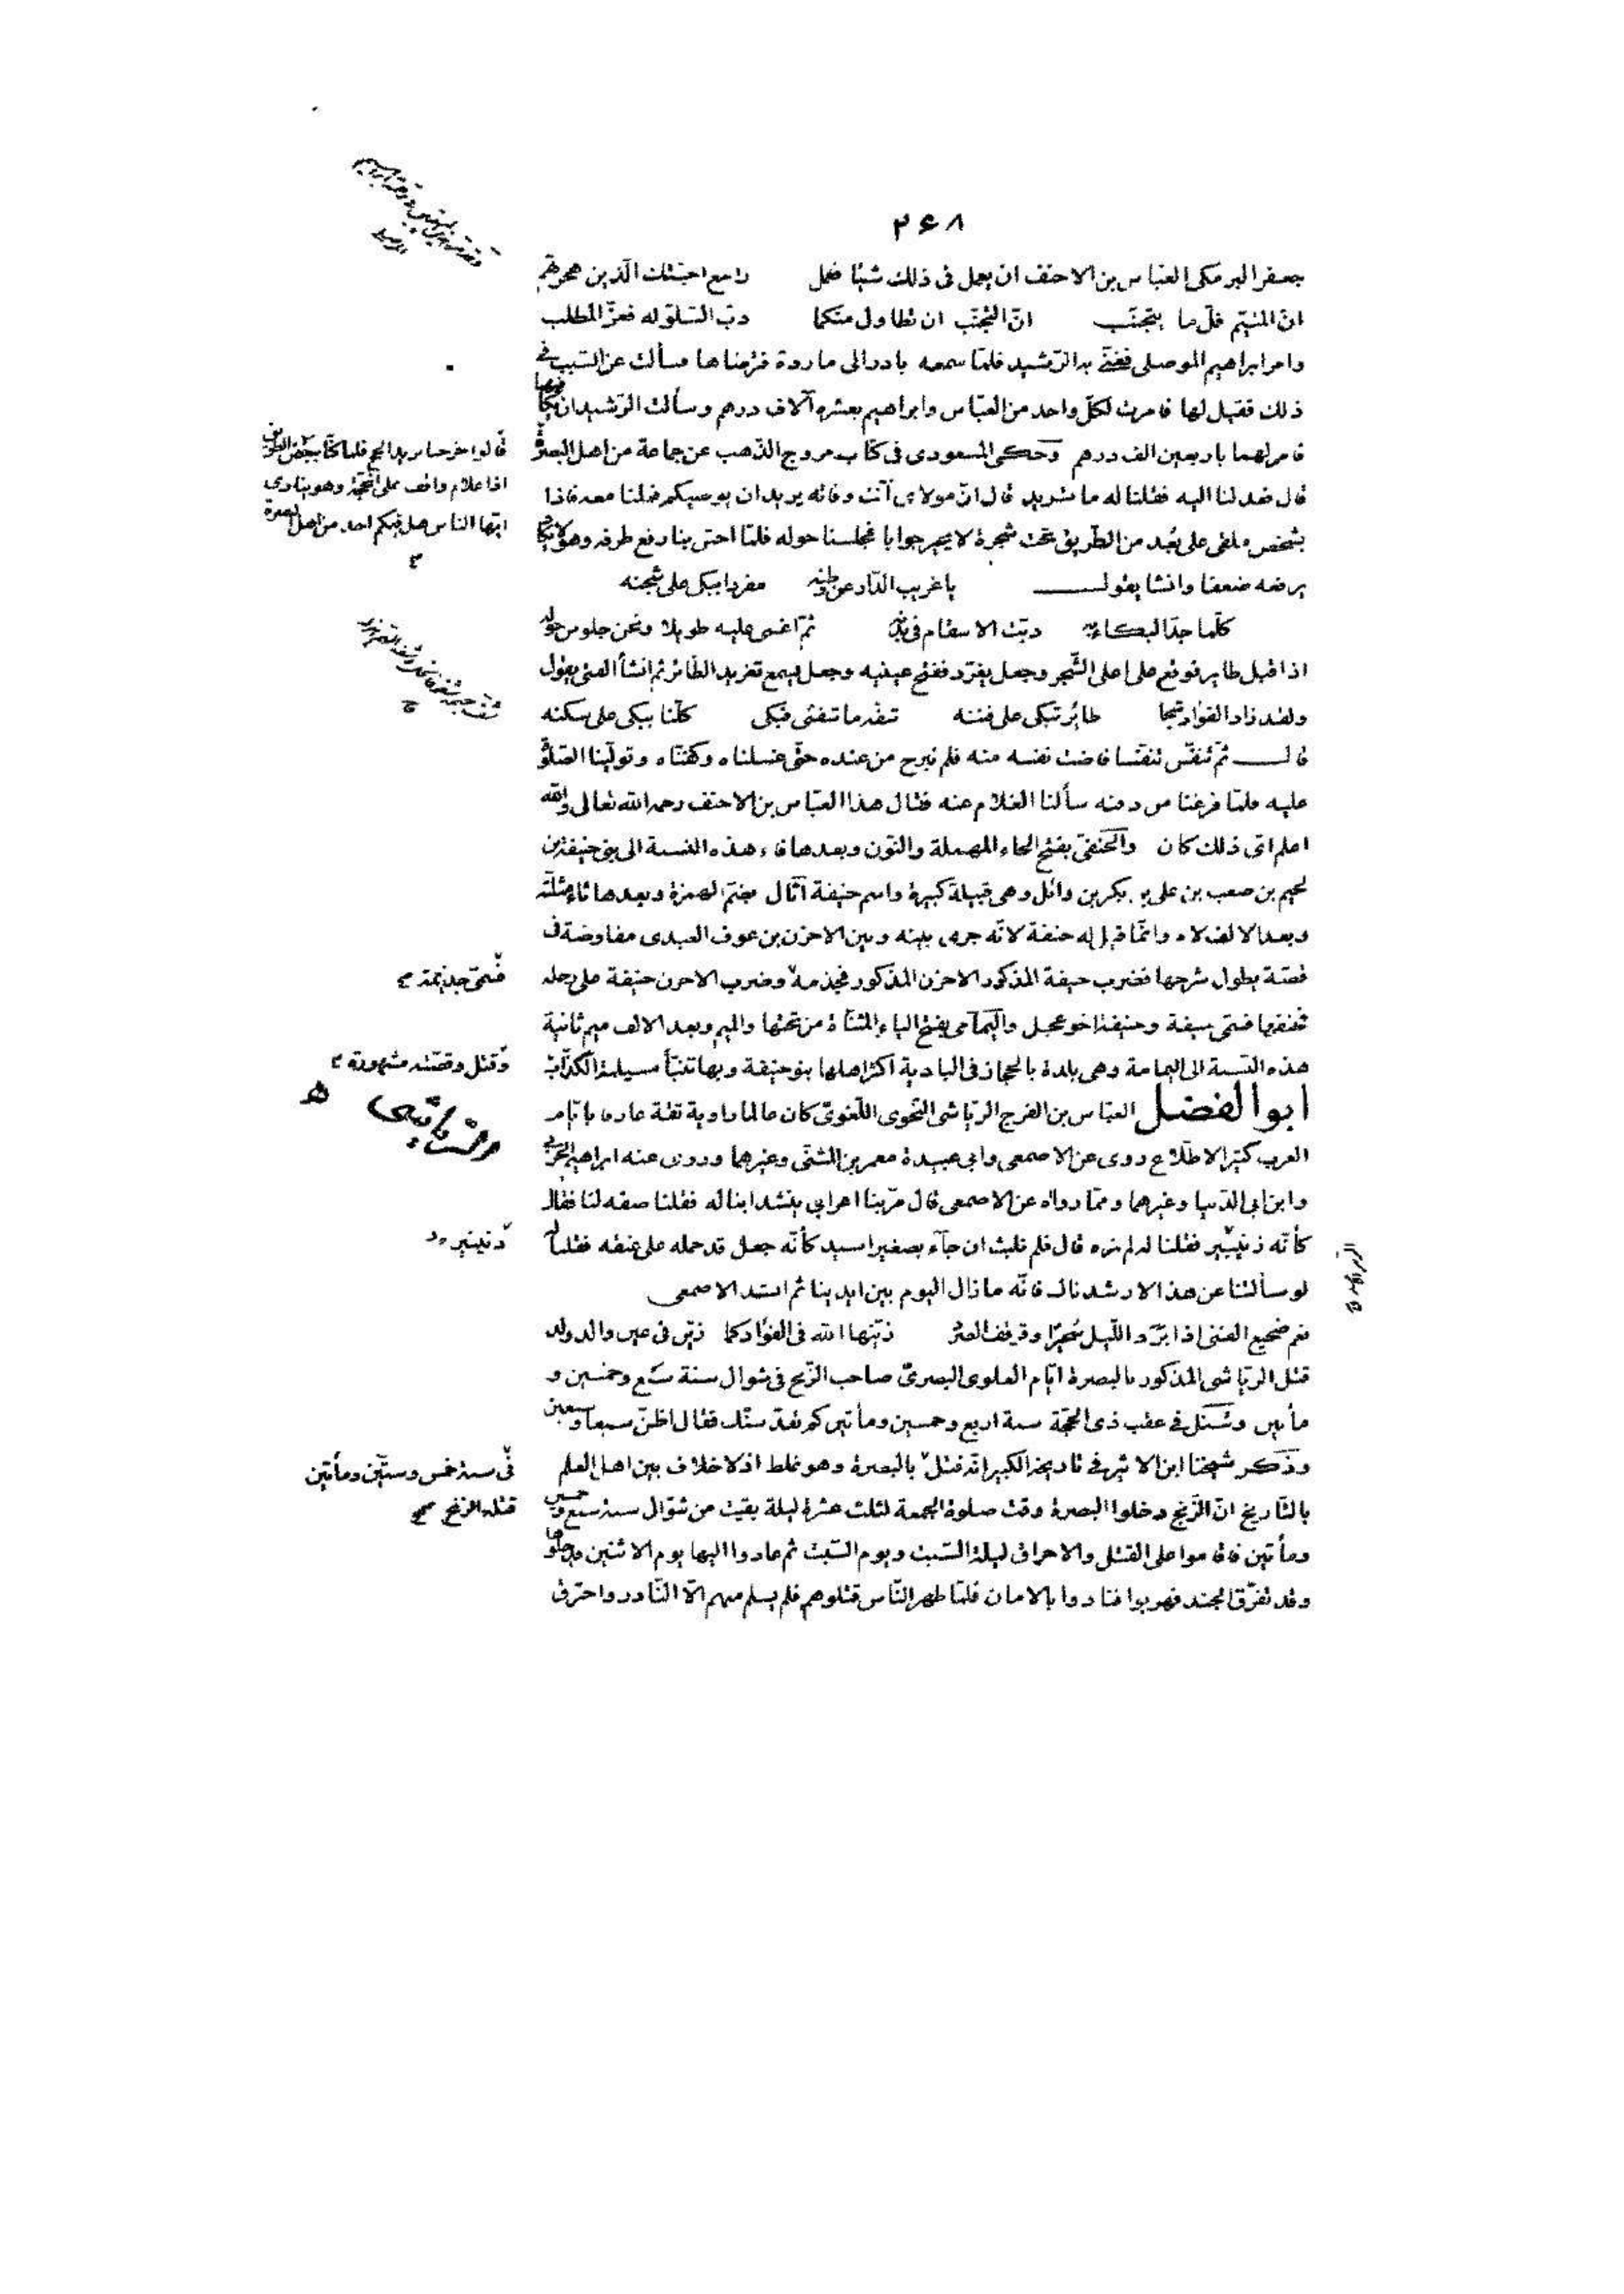 ٢۶٨
جعفر البرمكى العبّاس بن الاحنف ان يعمل فى ذلك شيئا فعمل راجع احبّتك الّذين هجرتهم
انّ المتيّم قلّ ما يتجنّب انّ التّجنّب ان تطاول منكما دبّ السّلوّ له فعزّ المطلب
وامر ابراهيم الموصلى فغنّى به الرّشيد فلمّا سمعه بادر الى ماردة فترضاها فسألت عن السّبب فى
ذلك فقيل لها فامرت لكلّ واحد من العبّاس وابراهيم بعشرة آلاف درهم وسألت الرّشيد ان يكافيهما
فامر لهما باربعين الف درهم وحكى المسعودى فى كتاب مروج الذّهب عن جماعة من اهل البصرة
قالوا خرجنا نريد الحج فلما كنّا ببعض الطريق
اذا غلام واقف على المحجّة وهو ينادى
ايّها الناس هل فيكم احد من اهل البصرة
قال فعدلنا اليه فقلنا له ما تريد قال انّ مولاى آنت وفاته يريد ان يوصيكم فملنا معه فاذا
بشخص ملقى على بُعد من الطّريق تحت شجرة لا يحير جوابا فجلسنا حوله فلمّا احسّ بنا رفع طرفه وهو لا يكاد
يرفعه ضعفا وانشا يقول يا غريب الدّار عن وطنه مفردا يبكى على شجنه
كلّما جدّ البكاء به دبّت الاسقام فى بدنه ثمّ اغمى عليه طويلا ونحن جلوس حوله
اذا قبل طاير فوقع على اعلى الشّجر وجعل يغرّد ففتح عينيه وجعل يسمع تغريد الطّائر ثم انشأ الفتى يقول
ولقد زاد الفؤاد شجا طائر يبكى على فننه شفّه ما شفّنى فبكى كلّنا يبكى على سكنه
قال ثمّ تنفّس تنفّسا فاضت نفسه منه فلم نبرح من عنده حتّى غسلناه وكفنّاه وتولّينا الصّلوة
عليه فلمّا فرغنا من دفنه سألنا الغلام عنه فقال هذا العبّاس بن الاحنف رحمه الله تعالى والله
اعلم اىّ ذلك كان والحنفى بفتح الحاء المهملة والنّون وبعدها فاء هذه النسبة الى بنى حنيفة بن
لجيم بن صعب بن على بن بكر بن وائل وهى قبيلة كبيرة واسم حنيفة أثال بضمّ الهمزة وبعدها ثاء مثلّثة
وبعد الالف لام وانّما قيل له حنفة لانّه جرى بينه وبين الاحزن بن عوف العبدى مفاوضة فى
قصّة يطول شرحها فضرب حنيفة المذكور الاحزن المذكور فجذمه وضرب الاحزن حنيفة على رجله
فسمّى جذيمة
فحنفها فسمّى حنيفة وحنيفة اخو عجل واليمامى بفتح الياء المثنّاة من تحتها والميم وبعد الالف ميم ثانية
هذه النّسبة الى اليمامة وهى بلدة بالحجاز فى البادية اكثر اهلها بنو حنيفة وبها تنبّأ مسيلمة الكذّاب
وقتل وقصّته مشهورة
ابو الفضل العبّاس بن الفرج الرّياشى النّحوى اللّغوىّ كان عالما راوية ثقة عارفا بايّام
العرب كثير الاطّلاع روى عن الاصمعى وابى عبيدة معمر بن المثنّى وغيرهما وروى عنه ابراهيم الحربى
وابن ابى الدّنيا وغيرهما وممّا رواه عن الاصمعى قال مرّ بنا اعرابى ينشد ابنا له فقلنا صفه لنا فقال
كأنّه دنينير فقلنا له لم نره قال فلم نلبث ان جآء بصغير اسيد كأنّه جعل قد حمله على عنقه فقلنا له
دنينير
لو سألتنا عن هذا لارشدناك فانّه ما زال اليوم بين ايدينا ثم انشد الاصمعى
نعم ضجيع الفتى اذا برد اللّيل سحيرا وقرقف الصّرد زيّنها الله فى الفؤاد كما زيّن فى عين والد ولد
قتل الرّياشى المذكور بالبصرة ايّام العلوى البصرىّ صاحب الزّنج فى شوال سنة سبع وخمسين و
مأتين وسئل فى عقب ذى الحجّة سنة اربع وخمسين ومأتين كم تعدّ سنّك فقال اظنّ سبعا وسبعين
وذكر شيخنا ابن الاثير فى تاريخه الكبير انه قتل بالبصرة وهو غلط اذ لا خلاف بين اهل العلم
فى سنة خمس وستّين ومأتين
قتله الزنج
بالتّاريخ انّ الزّنج دخلوا البصرة وقت صلوة الجمعة لثلث عشرة ليلة بقيت من شوّال سنة سبع وخمسين
ومأتين فاقاموا على القتل والاحراق ليلة السّبت ويوم السّبت ثم عادوا اليها يوم الاثنين فدخلوها
وقد تفرّق الجند وهربوا فنادوا بالامان فلمّا ظهر النّاس قتلوهم فلم يسلم منهم الّا النّادر واحترق